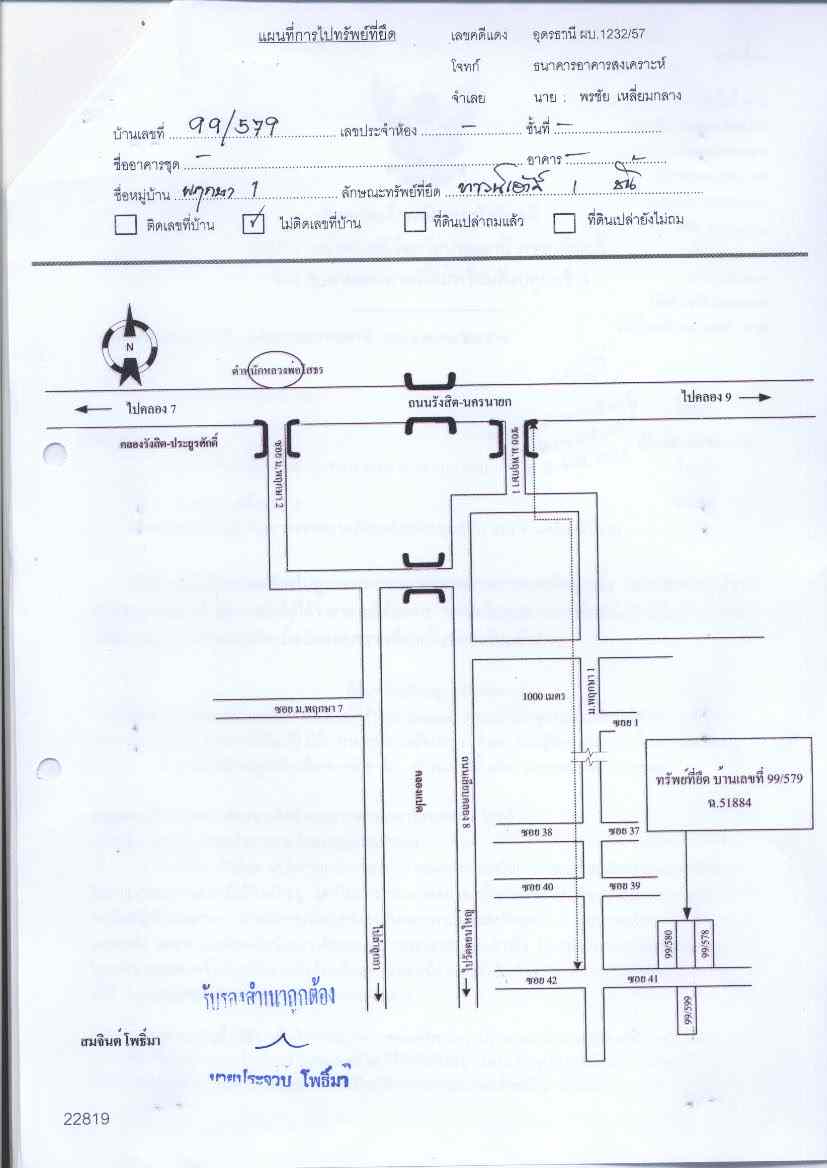 แผนที่การไปทรัพย์ที่ยึด
เลขคดีแดง อุดรธานี ผบ.1232/57
โจทก์ ธนาคารอาคารสงเคราะห์
จำเลย นาย : พรชัย เหลี่ยมกลาง
บ้านเลขที่ 99/579 เลขประจำห้อง – ชั้นที่ –
ชื่ออาคารชุด – อาคาร –
ชื่อหมู่บ้าน พฤกษา 1 ลักษณะทรัพย์ที่ยึด ทาวน์เฮาส์ 1 ชั้น
ติดเลขที่บ้าน ✓ ไม่ติดเลขที่บ้าน ที่ดินเปล่าถมแล้ว ที่ดินเปล่ายังไม่ถม
N
ตำหนักหลวงพ่อโสธร
ไปคลอง 7
ถนนรังสิต-นครนายก
ไปคลอง 9
คลองรังสิต-ประยูรศักดิ์
ซอย ม.พฤกษา 2
ซอย ม.พฤกษา 1
1000 เมตร
ม.พฤกษา 1
ซอย ม.พฤกษา 7
ซอย 1
คลองแปด
ถนนเลียบคลอง 8
ทรัพย์ที่ยึด บ้านเลขที่ 99/579
ฉ.51884
ซอย 38
ซอย 37
ซอย 40
ซอย 39
99/580
99/578
ไปลำลูกกา
ซอย 42
ซอย 41
99/599
รับรองสำเนาถูกต้อง
สมจินต์ โพธิ์มา
นายประจวบ โพธิ์มา
22819